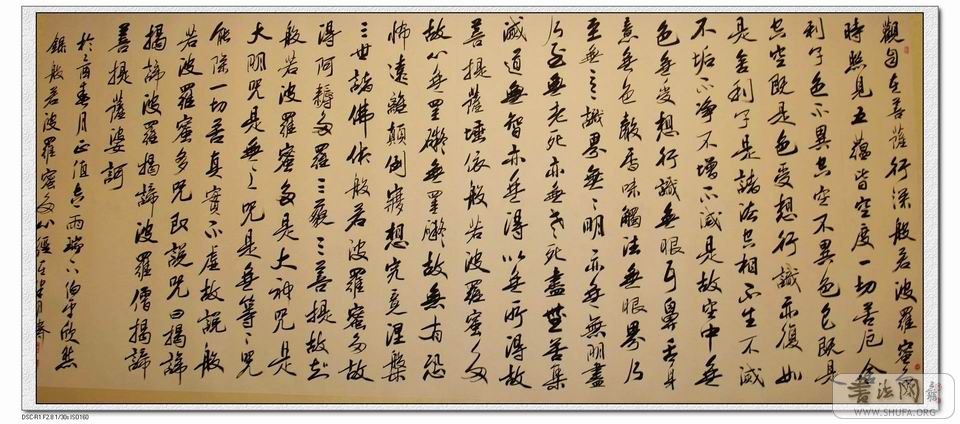 觀自在菩薩行深般若波羅蜜多
時照見五蘊皆空度一切苦厄舍
利子色不異空空不異色色既是
空空既是色受想行識亦復如
是舍利子是諸法空相不生不滅
不垢不淨不增不減是故空中無
色無受想行識無眼耳鼻舌身
意無色聲香味觸法無眼界乃
至無意識界無無明亦無無明盡
乃至無老死亦無老死盡無苦集
滅道無智亦無得以無所得故
菩提薩埵依般若波羅蜜多
故心無罣礙無罣礙故無有恐
怖遠離顛倒夢想究竟涅槃
三世諸佛依般若波羅蜜多故
得阿耨多羅三藐三菩提故知
般若波羅蜜多是大神咒是
大明咒是無上咒是無等等咒
能除一切苦真實不虛故說般
若波羅蜜多咒即說咒曰揭諦
揭諦波羅揭諦波羅僧揭諦
菩提薩婆訶
於乙酉春月正值谷雨欣然
錄般若波羅蜜多心經
書法網
WWW.SHUFA.COM
DSC-R1 F2.8 1/30s ISO160